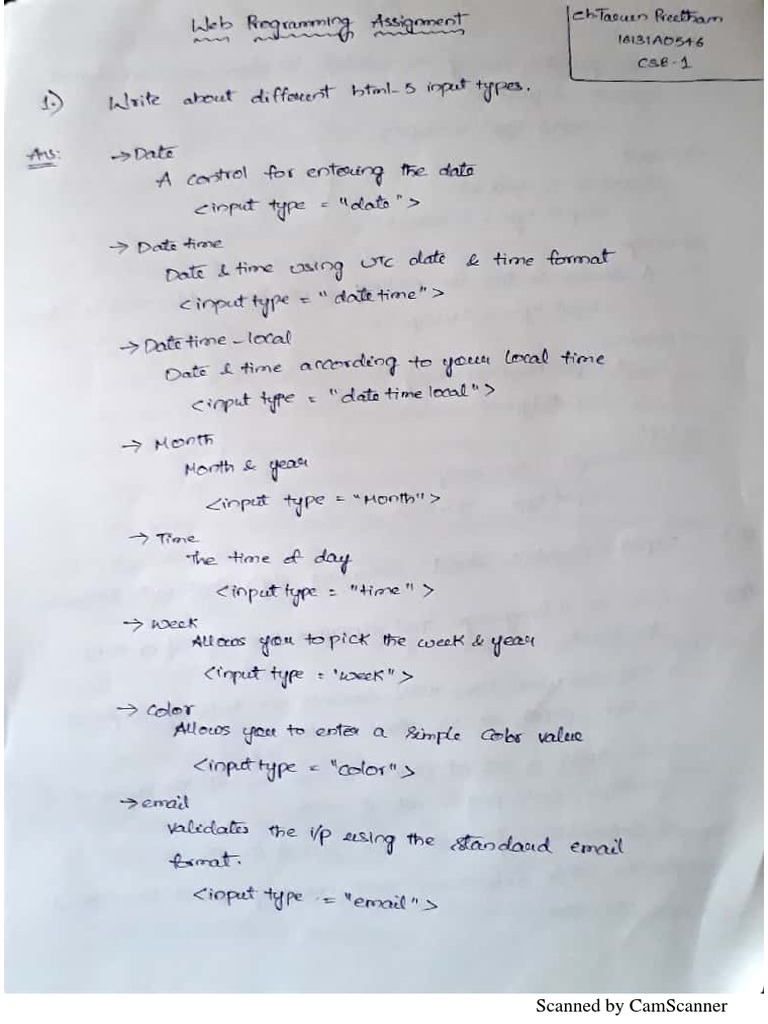 Web Programming Assignment
Ch Taruen Preetham
18131A0546
CSE-1
1.) Write about different html-5 input types.
Ans: → Date
A control for entering the date
<input type = "date">
→ Date time
Date & time using UTC date & time format
<input type = "date time">
→ Date time - local
Date & time according to your local time
<input type = "date time local">
→ Month
Month & year
<input type = "Month">
→ Time
The time of day
<input type = "time">
→ Week
Allows you to pick the week & year
<input type = 'week">
→ Color
Allows you to enter a simple color value
<input type = "color">
→ email
validates the i/p using the standard email
format.
<input type = "email">
Scanned by CamScanner